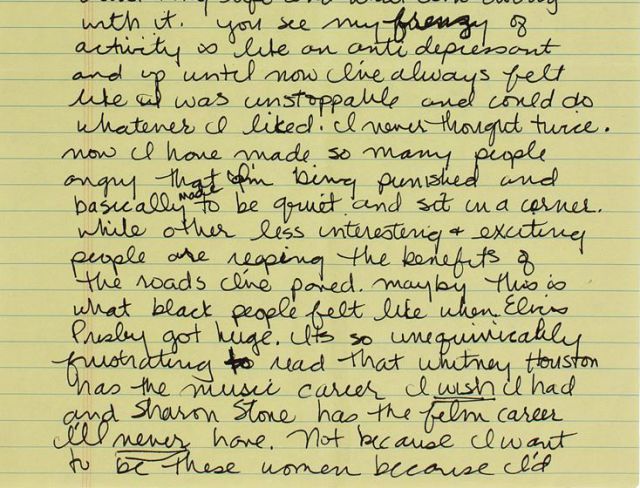 with it. you see my frenzy of
activity is like an anti depressant
and up until now I've always felt
like I was unstoppable and could do
whatever I liked. I never thought twice.
now I have made so many people
angry that I'm being punished and
basically made to be quiet and sit in a corner.
while other less interesting + exciting
people are reaping the benefits of
the roads I've paved. mayby this is
what black people felt like when Elvis
Presley got huge. Its so unequivicably
frustrating to read that whitney Houston
has the music career I wish I had
and Sharon Stone has the film career
I'll never have. Not because I want
to be these women because I'd